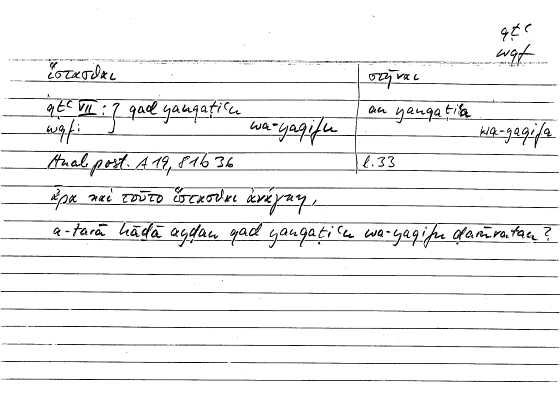 qṭʿ
wqf
ἵστασθαι στῆναι
qṭʿ VII : } qad yanqaṭiʿu an yanqaṭiʿa
wqf: wa-yaqifu wa-yaqifa
Anal. post. A 19, 81b 36 l.33
ἆρα καὶ τοῦτο ἵστασθαι ἀνάγκη,
a-tarā hāḏā ayḍan qad yanqaṭiʿu wa-yaqifu ḍarūratan ?